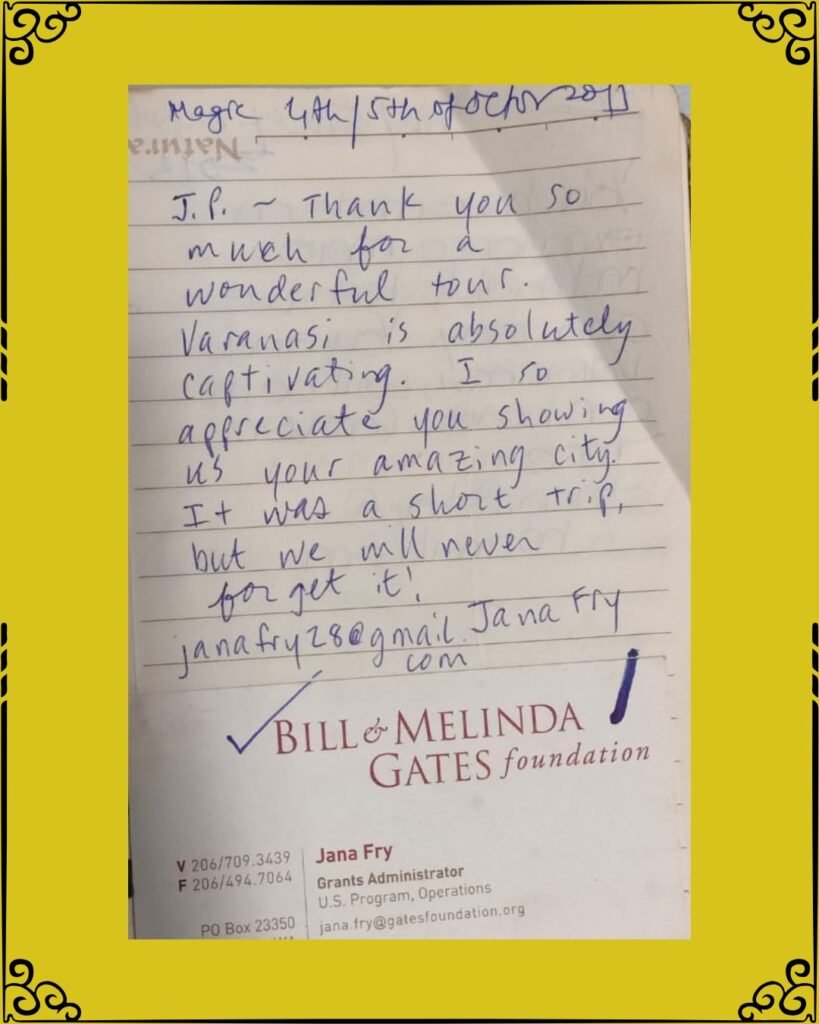 Magic 4th/5th of Octor 2011
Natura
J.P. ~ Thank you so
much for a
wonderful tour.
Varanasi is absolutely
captivating. I so
appreciate you showing
us your amazing city.
It was a short trip,
but we will never
forget it!
janafry28@gmail. Jana Fry
com
BILL & MELINDA
GATES foundation
V 206/709.3439
F 206/494.7064
PO Box 23350
Jana Fry
Grants Administrator
U.S. Program, Operations
jana.fry@gatesfoundation.org